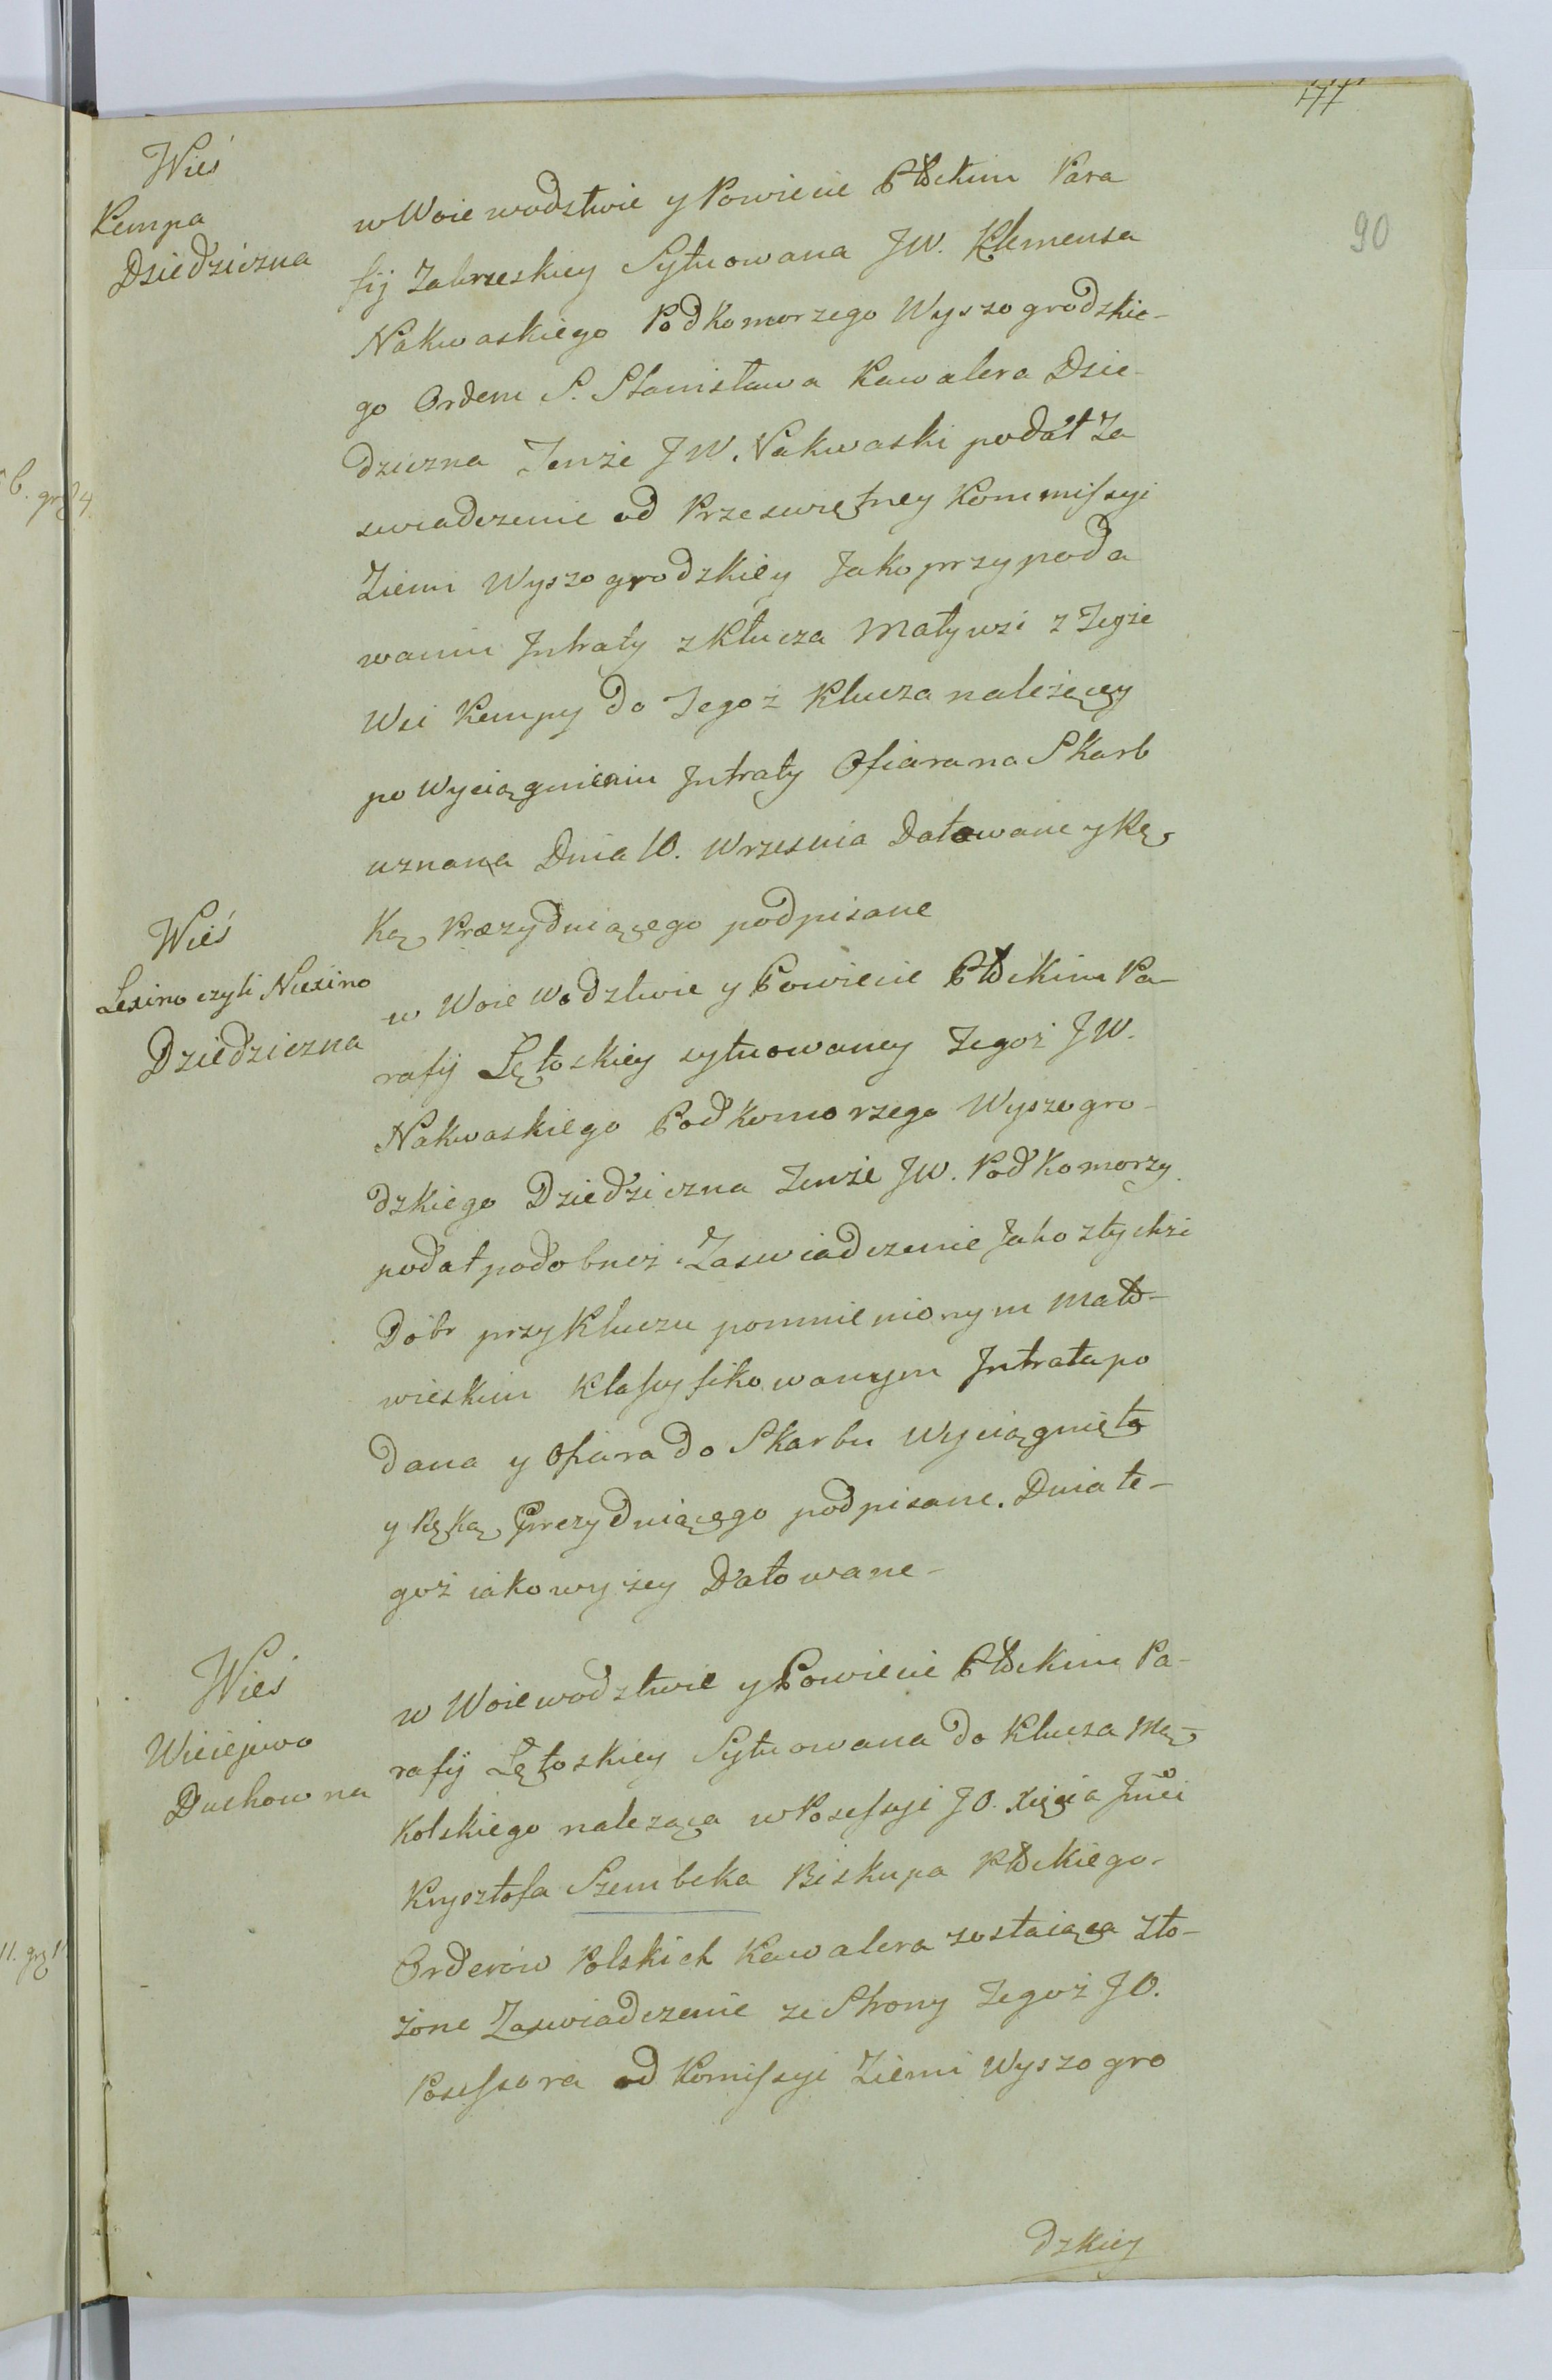 177
90
Wieś
Kempa
Dziedziczna
w Woiewodztwie y Powiecie Płłckim Para
fij Zakrzeskiey Sytuowana JW. Klemensa
Nakwaskiego Podkomorzego Wyszogrodzkie-
go Orderu S. Stanisława Kawalera Dzie-
dziczna Tenże JW. Nakwaski podał Za
swiadczenie od Przeswiętney Kommissyi
Ziemi Wyszogrodzkiey Jako przy poda
waniu Jntraty z Klucza Maływsi z Teyże
Wsi Kempy do Tegoż Klucza należący
po Wyciągnieniu Jntraty Ofiara na Skarb
uznana Dnia 10. Wrzesnia Datowane y Rę
Ką Prezyduiącego podpisane
Wieś
Lexino czyli Niexino
Dziedziczna
w Woiewodztwie y Powiecie Płłckim Pa-
rafij Łętoskiey sytuowaney Tegoż JW.
Nakwaskiego Podkomorzego Wyszogro-
dzkiego Dziedziczna Tenże JW. Podkomorzy
podał podobneż Zaswiadczenie Jako z tychże
Dóbr przy Kluczu pomnienionym Mało-
wieskim Klassyfikowanym Jntrata po
dana y Ofiara do Skarbu Wyciągnięta
y Ręką Prezyduiącego podpisane. Dnia te-
goż iako wyżey Datowane-
Wieś
Wiciejewo
Duchowna
w Woiewodztwie y Powiecie Płłckim Pa-
rafij Łętoskiey Sytuowana do Klucza Mą-
kolskiego należąca w Posessyi JO. Xięcia Jmci
Krysztofa Szembeka Biskupa Płłckiego-
Orderów Polskich Kawalera zostaiąca zło-
żone Zaswiadczenie ze Strony Tegoż JO.
Posessora od Komissyi Ziemi Wyszogro
dzkiey